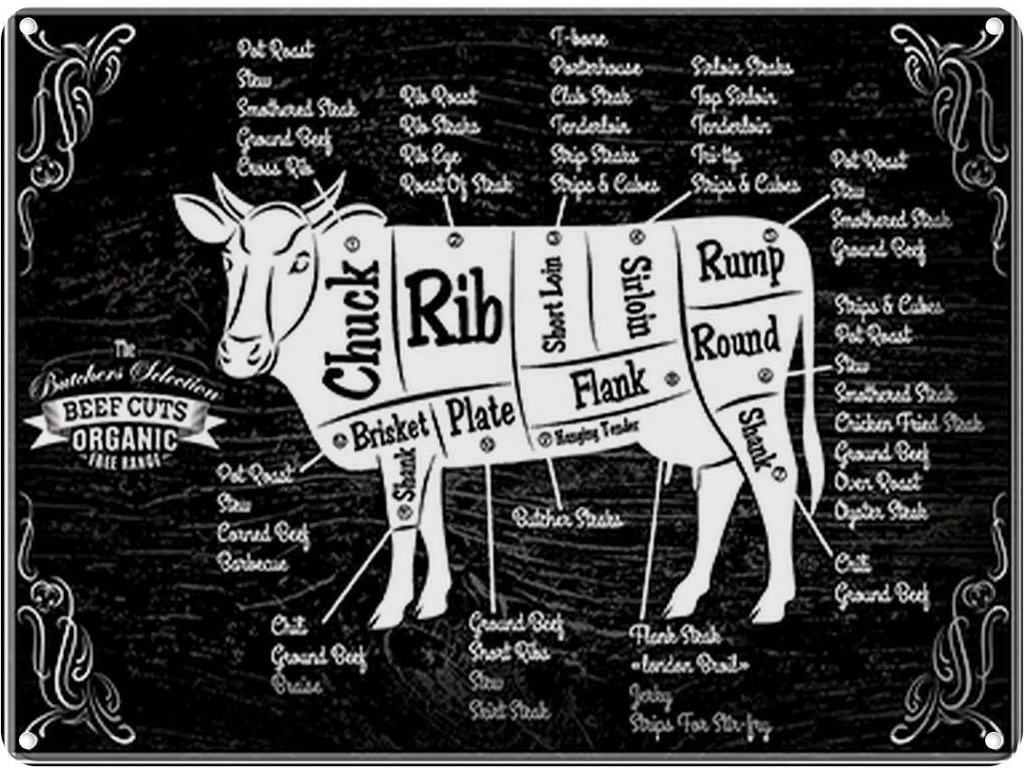 Pot Roast
Stew
Smothered Steak
Ground Beef
Cross Rib
Rib Roast
Rib Steaks
Rib Eye
Roast Of Steak
T-bone
Porterhouse
Club Steak
Tenderloin
Strip Steaks
Strips & Cubes
Sirloin Steaks
Top Sirloin
Tenderloin
Tri-tip
Strips & Cubes
Pot Roast
Stew
Smothered Steak
Ground Beef
Strips & Cubes
Pot Roast
Stew
Smothered Steak
Chicken Fried Steak
Ground Beef
Over Roast
Oyster Steak
Chili
Ground Beef
Chuck
Rib
Short Loin
Sirloin
Rump
Round
Flank
Hanging Tender
Brisket
Plate
Shank
Shank
The
Butchers Selection
BEEF CUTS
ORGANIC
FREE RANGE
Pot Roast
Stew
Corned Beef
Barbecue
Butcher Steaks
Chili
Ground Beef
Braise
Ground Beef
Short Ribs
Stew
Skirt Steak
Flank Steak
«london Broil»
Jerky
Strips For Stir-fry